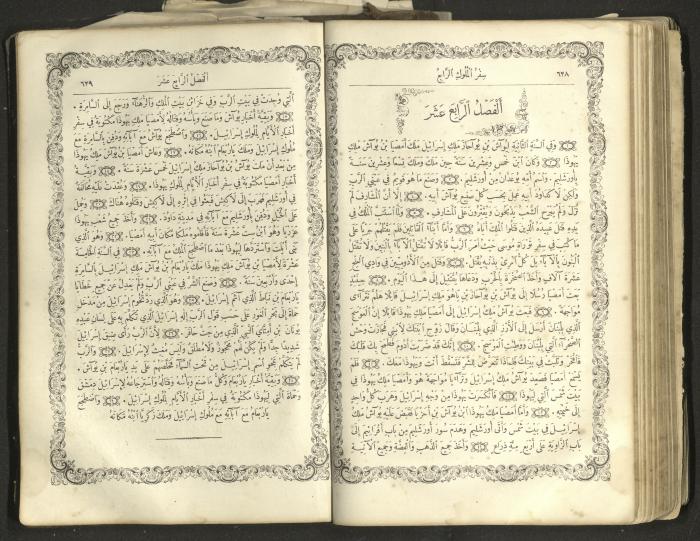 ٦٣٨
سِفْرُ ٱلْمُلُوكِ ٱلرَّابِعُ
اَلْفَصْلُ ٱلرَّابِعَ عَشَرَ
وفي السنة الثانية ليوآش بن يوآحاز ملك إسرائيل ملك أمصيا بن يوآش ملك
يهوذا وكان ابن خمس وعشرين سنة حين ملك وملك تسعا وعشرين سنة
بأورشليم. واسم أمه يوعدان من أورشليم. وصنع ما هو قويم في عيني الرب
ولكن لا كداود أبيه عمل بحسب كل صنيع يوآش أبيه. إلا أن المشارف لم
تزل ولم يبرح الشعب يذبحون ويقترون على المشارف. ولما استتب الملك في
يده قتل عبيده الذين قتلوا الملك أباه وأما أبناء القاتلين فلم يقتلهم جريا على
ما كتب في سفر توراة موسى حيث أمر الرب قائلا لا تقتل الآباء بالبنين ولا تقتل
البنون بالآباء بل كل امرئ بذنبه يقتل. وقتل من الأدوميين في وادي الملح
عشرة آلاف وأخذ الصخرة بالحرب ودعاها يقتئيل إلى هذا اليوم. حينئذ
بعث أمصيا رسلا إلى يوآش بن يوآحاز بن ياهو ملك إسرائيل قائلا هلم نتراءى
مواجهة. فبعث يوآش ملك إسرائيل إلى أمصيا ملك يهوذا قائلا إن العوسج
الذي بلبنان أرسل إلى الأرز الذي بلبنان وقال زوج ابنتك لابني فجازت وحش
الصحراء التي بلبنان ووطئت العوسج. إنك قد ضربت أدوم فطمح بك قلبك
فافخر وٱلبث في بيتك فلماذا تتعرض للشر فتسقط أنت ويهوذا معك. فلم
يسمع أمصيا فصعد يوآش ملك إسرائيل وتراءيا مواجهة هو وأمصيا ملك يهوذا في
بيت شمس التي ليهوذا فانكسرت يهوذا من وجه إسرائيل وهرب كل واحد
إلى خيمته. وأما أمصيا ملك يهوذا ابن يوآش بن أحزيا فقبض عليه يوآش ملك
إسرائيل في بيت شمس وأتى أورشليم وهدم سور أورشليم من باب أفرائيم إلى
باب الزاوية على أربع مئة ذراع وأخذ جميع الذهب والفضة وجميع الآنية
٦٣٩
اَلْفَصْلُ ٱلرَّابِعَ عَشَرَ
التي وجدت في بيت الرب وفي خزائن بيت الملك والرهناء ورجع إلى السامرة.
وبقية أخبار يوآش وما صنع وبأسه وقتاله لأمصيا ملك يهوذا مكتوبة في سفر
أخبار الأيام لملوك إسرائيل. واضطجع يوآش مع آبائه ودفن بالسامرة مع
ملوك إسرائيل وملك ياربعام ابنه مكانه. وعاش أمصيا بن يوآش ملك يهوذا
من بعد أن مات يوآش بن يوآحاز ملك إسرائيل خمس عشرة سنة. وبقية
أخبار أمصيا مكتوبة في سفر أخبار الأيام لملوك يهوذا. وعقدت عليه محالفة
في أورشليم فهرب إلى لاكيش فبعثوا في إثره إلى لاكيش وقتلوه هناك وحمل
على الخيل ودفن بأورشليم مع آبائه في مدينة داود. وأخذ جميع شعب يهوذا
عزريا وهو ابن ست عشرة سنة فأقاموه ملكا مكان أبيه أمصيا. وهو الذي
بنى أيلت واستردها ليهوذا بعد ما اضطجع الملك مع آبائه. في السنة الخامسة
عشرة لأمصيا بن يوآش ملك يهوذا ملك ياربعام بن يوآش ملك إسرائيل بالسامرة
إحدى وأربعين سنة. وصنع الشر في عيني الرب ولم يعدل عن جميع خطايا
ياربعام بن نباط الذي آثم إسرائيل. وهو الذي رد تخوم إسرائيل من مدخل
حماة إلى بحر الغور على حسب قول الرب إله إسرائيل الذي تكلم به على لسان عبده
يونان بن أمتاي النبي الذي من جت حافر. لأن الرب رأى ضيق إسرائيل
شديدا جدا ولم يكن لهم محجوز ولا مطلق وليس مغيث لإسرائيل. والرب
لم يتكلم بمحو اسم إسرائيل من تحت السماء فخلصهم على يد ياربعام بن يوآش.
وبقية أخبار ياربعام وكل ما صنع وبأسه وقتاله واسترجاعه لإسرائيل دمشق
وحماة التي ليهوذا مكتوبة في سفر أخبار الأيام لملوك إسرائيل. واضطجع
ياربعام مع آبائه مع ملوك إسرائيل وملك زكريا ابنه مكانه